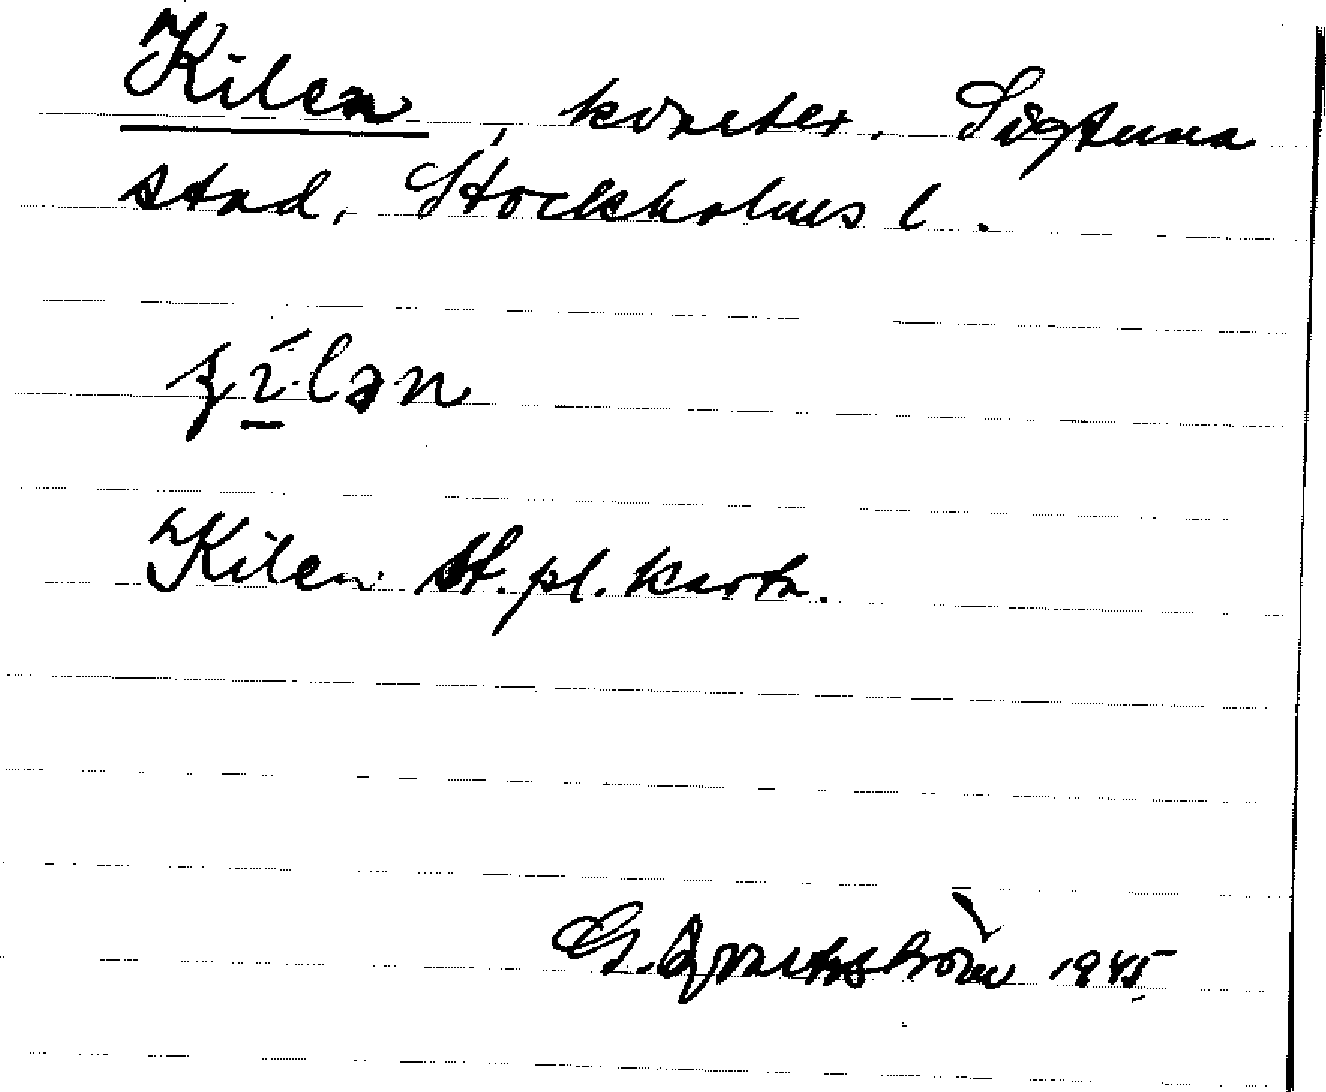 Kilen, kvarter. Sigtuna
stad, Stockholms l.
Kilen St.pl.karta.
G. 1945